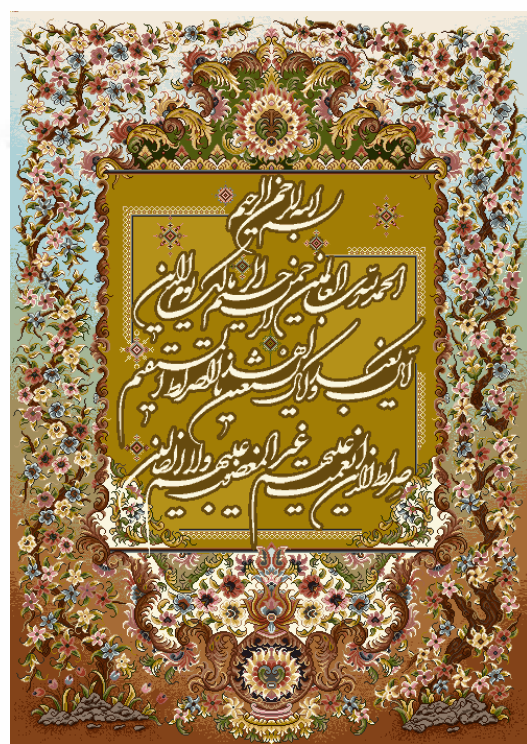 بسم الله الرحمن الرحیم
الحمد لله رب العالمین الرحمن الرحیم مالک یوم الدین
ایاک نعبد و ایاک نستعین اهدنا الصراط المستقیم
صراط الذین انعمت علیهم غیر المغضوب علیهم ولا الضالین